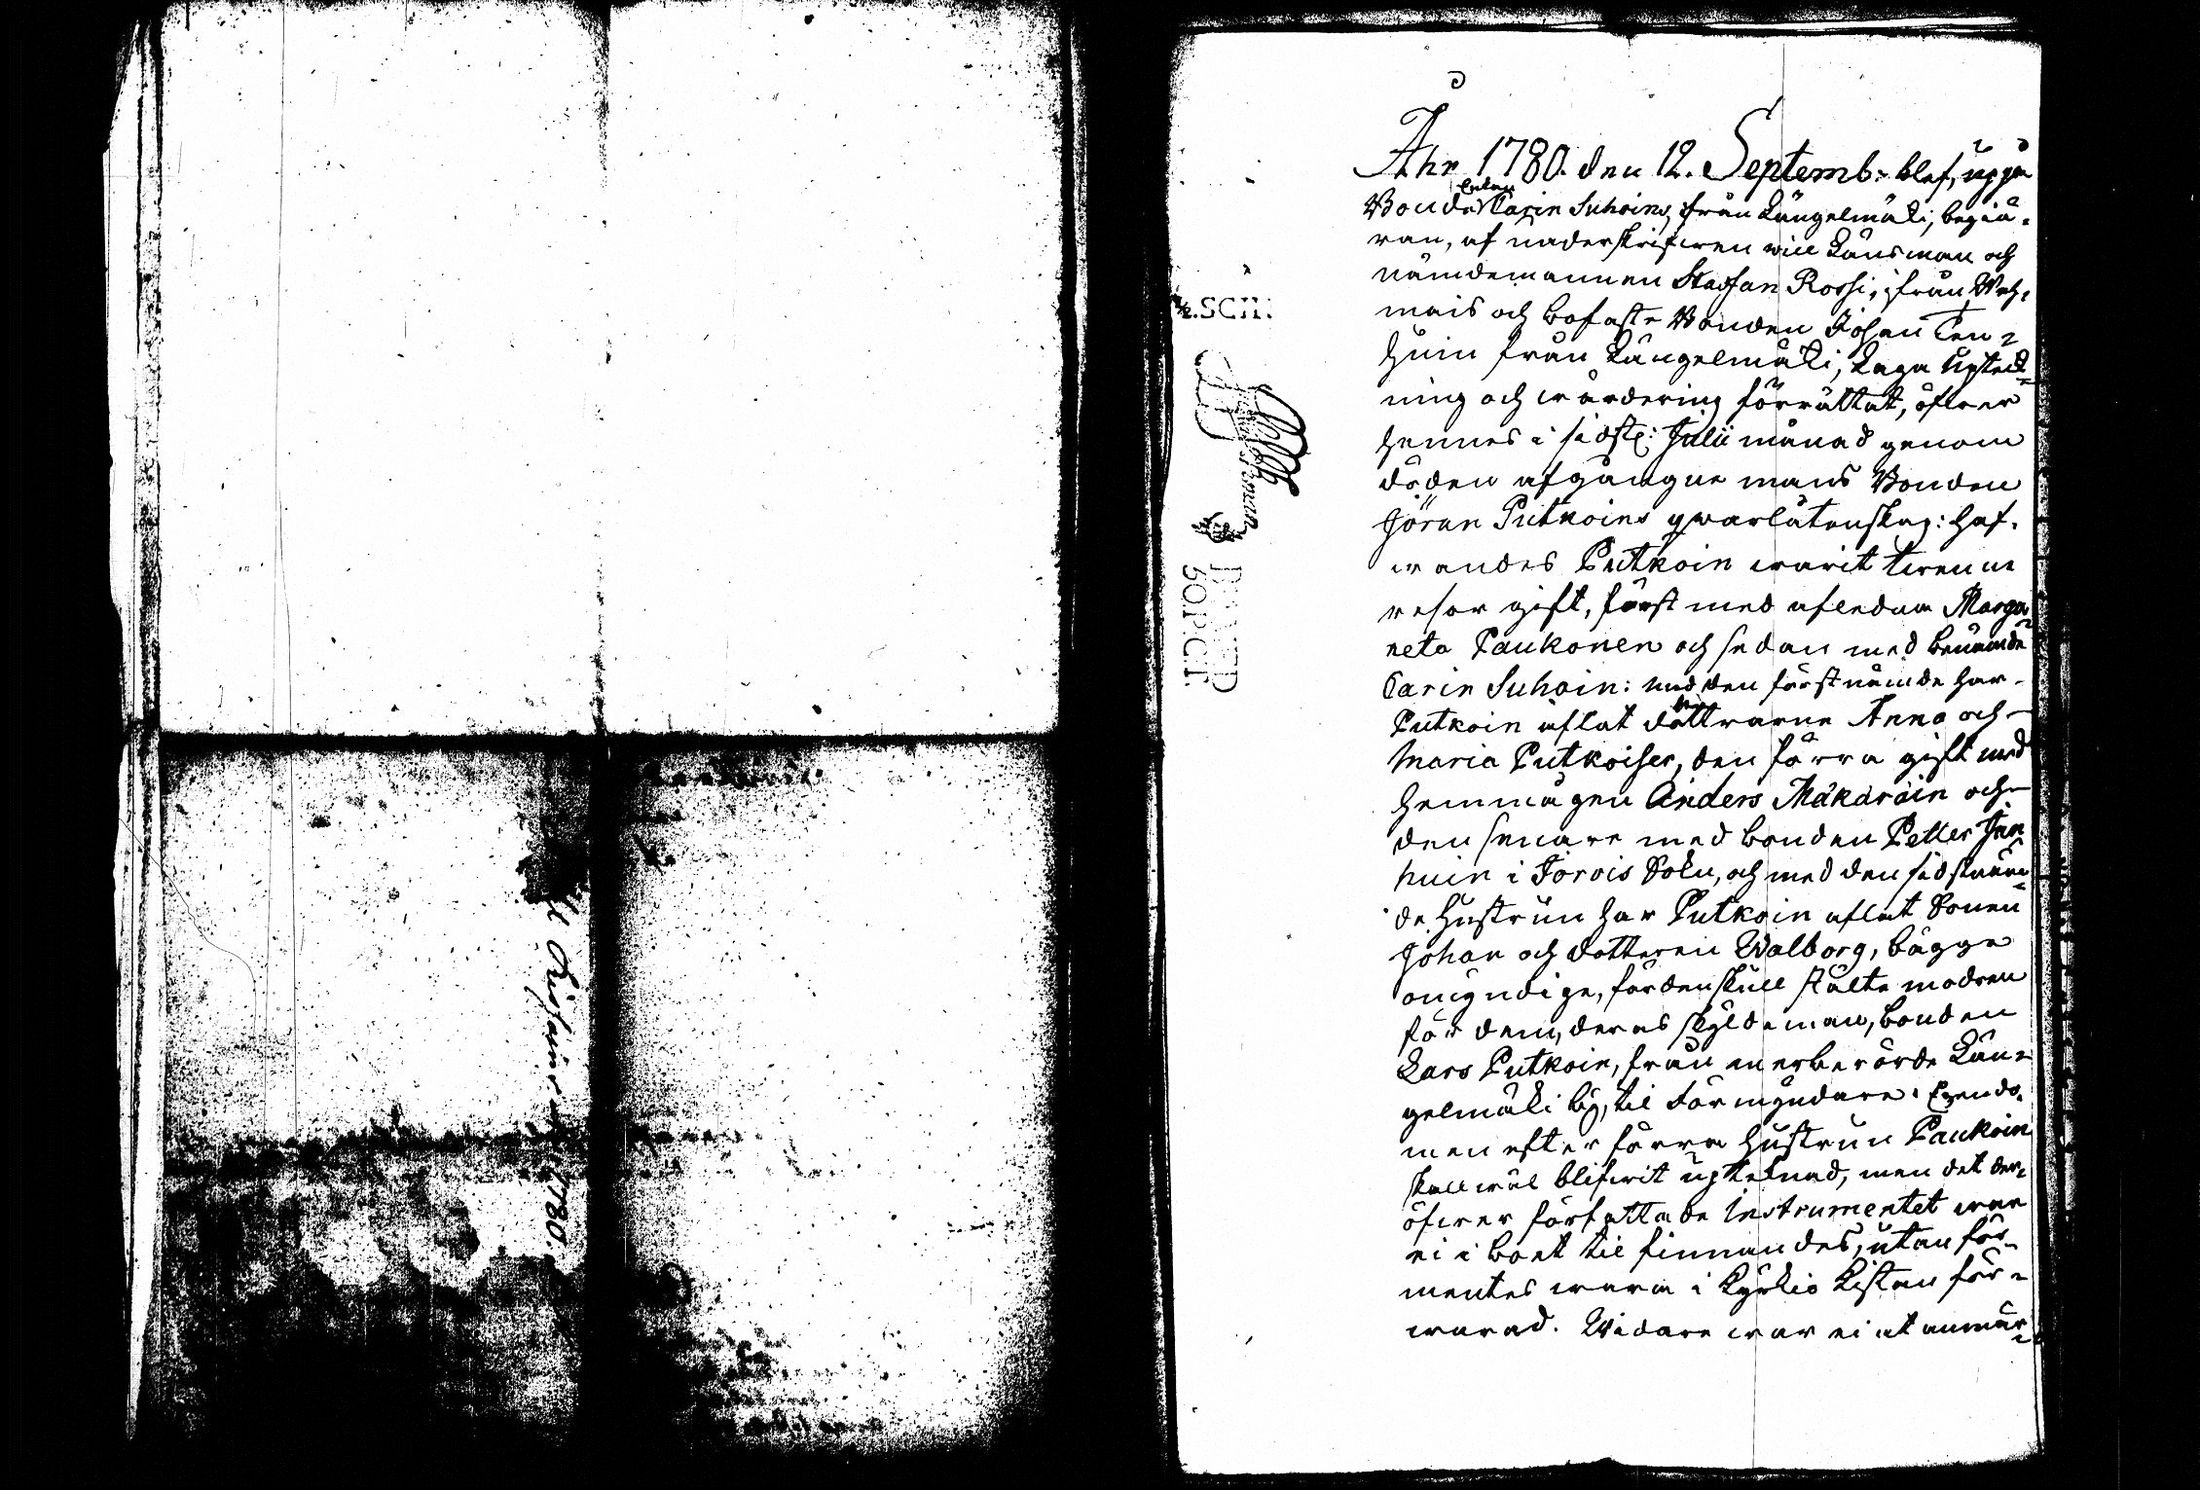 Åhr 1780. den 12. Septemb: blef, uppå
Bonde Enkan Carin Suhoins, från Längelmäki, begiä-
ran, af underskrifven vice Länsman och
nämdemannen Staffan Rossi, från Weh-
mais och bofaste Bonden Johan Ten-
huin från Längelmäki, Laga Uptek-
ning och wärdering förrättat, öfwer
hennes i sidstl: Julii månad genom
döden afgångne mans Bonden
Jöran Putkoins qvarlåtenskap: haf-
wandes Putkoin warit twenne
resor gift, först med afledna Marga-
reta Paukonen och sedan med benämde
Carin Suhoin: med den förstnämde har
Putkoin aflat döttrarne Anna och
Maria Putkoiser, den förra gift med
hemmågen Anders Makaroin och
den senare med bonden Petter Jan
huin i Jorois Sokn, och med den sidstnäm-
de hustrun har Putkoin aflat Sonen
Johan och dotteren Walborg, bägge
omyndige, fördenskull stälte modren
för dem, deras skyldeman, bonden
Lars Putkoin, från merberörde Län-
gelmäki by, til Förmyndare. Egendo-
men efter förra hustrun Paukoin
skall wäl blifwit upteknad, men det der-
öfwer författade Instrumentet war
ei i boet til finnandes, utan för-
mentes wara i Kyrkio Kistan för-
warad. Widare war ei at anmär-
1/2.SCH:
50.P.C.T.
1780.